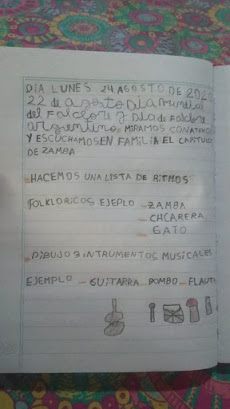 DIA LUNES 24 AGOSTO DE 202
22 de agosto DIA mundial
del Folclore y Dia de Folclore
argentino: MIRAMOS CON ATENCI
Y ESCUCHAMOS EN FAMILIA EL CAPITULO
DE ZAMBA
-HACEMOS UNA LISTA DE RITMOS
FOLKLORICOS EJEPLO - ZAMBA
- CHCARERA
- GATO
-DIBUJO 3 INTRUMENTOS MUSICALES
EJEMPLO - GUITARRA BOMBO - FLAUT